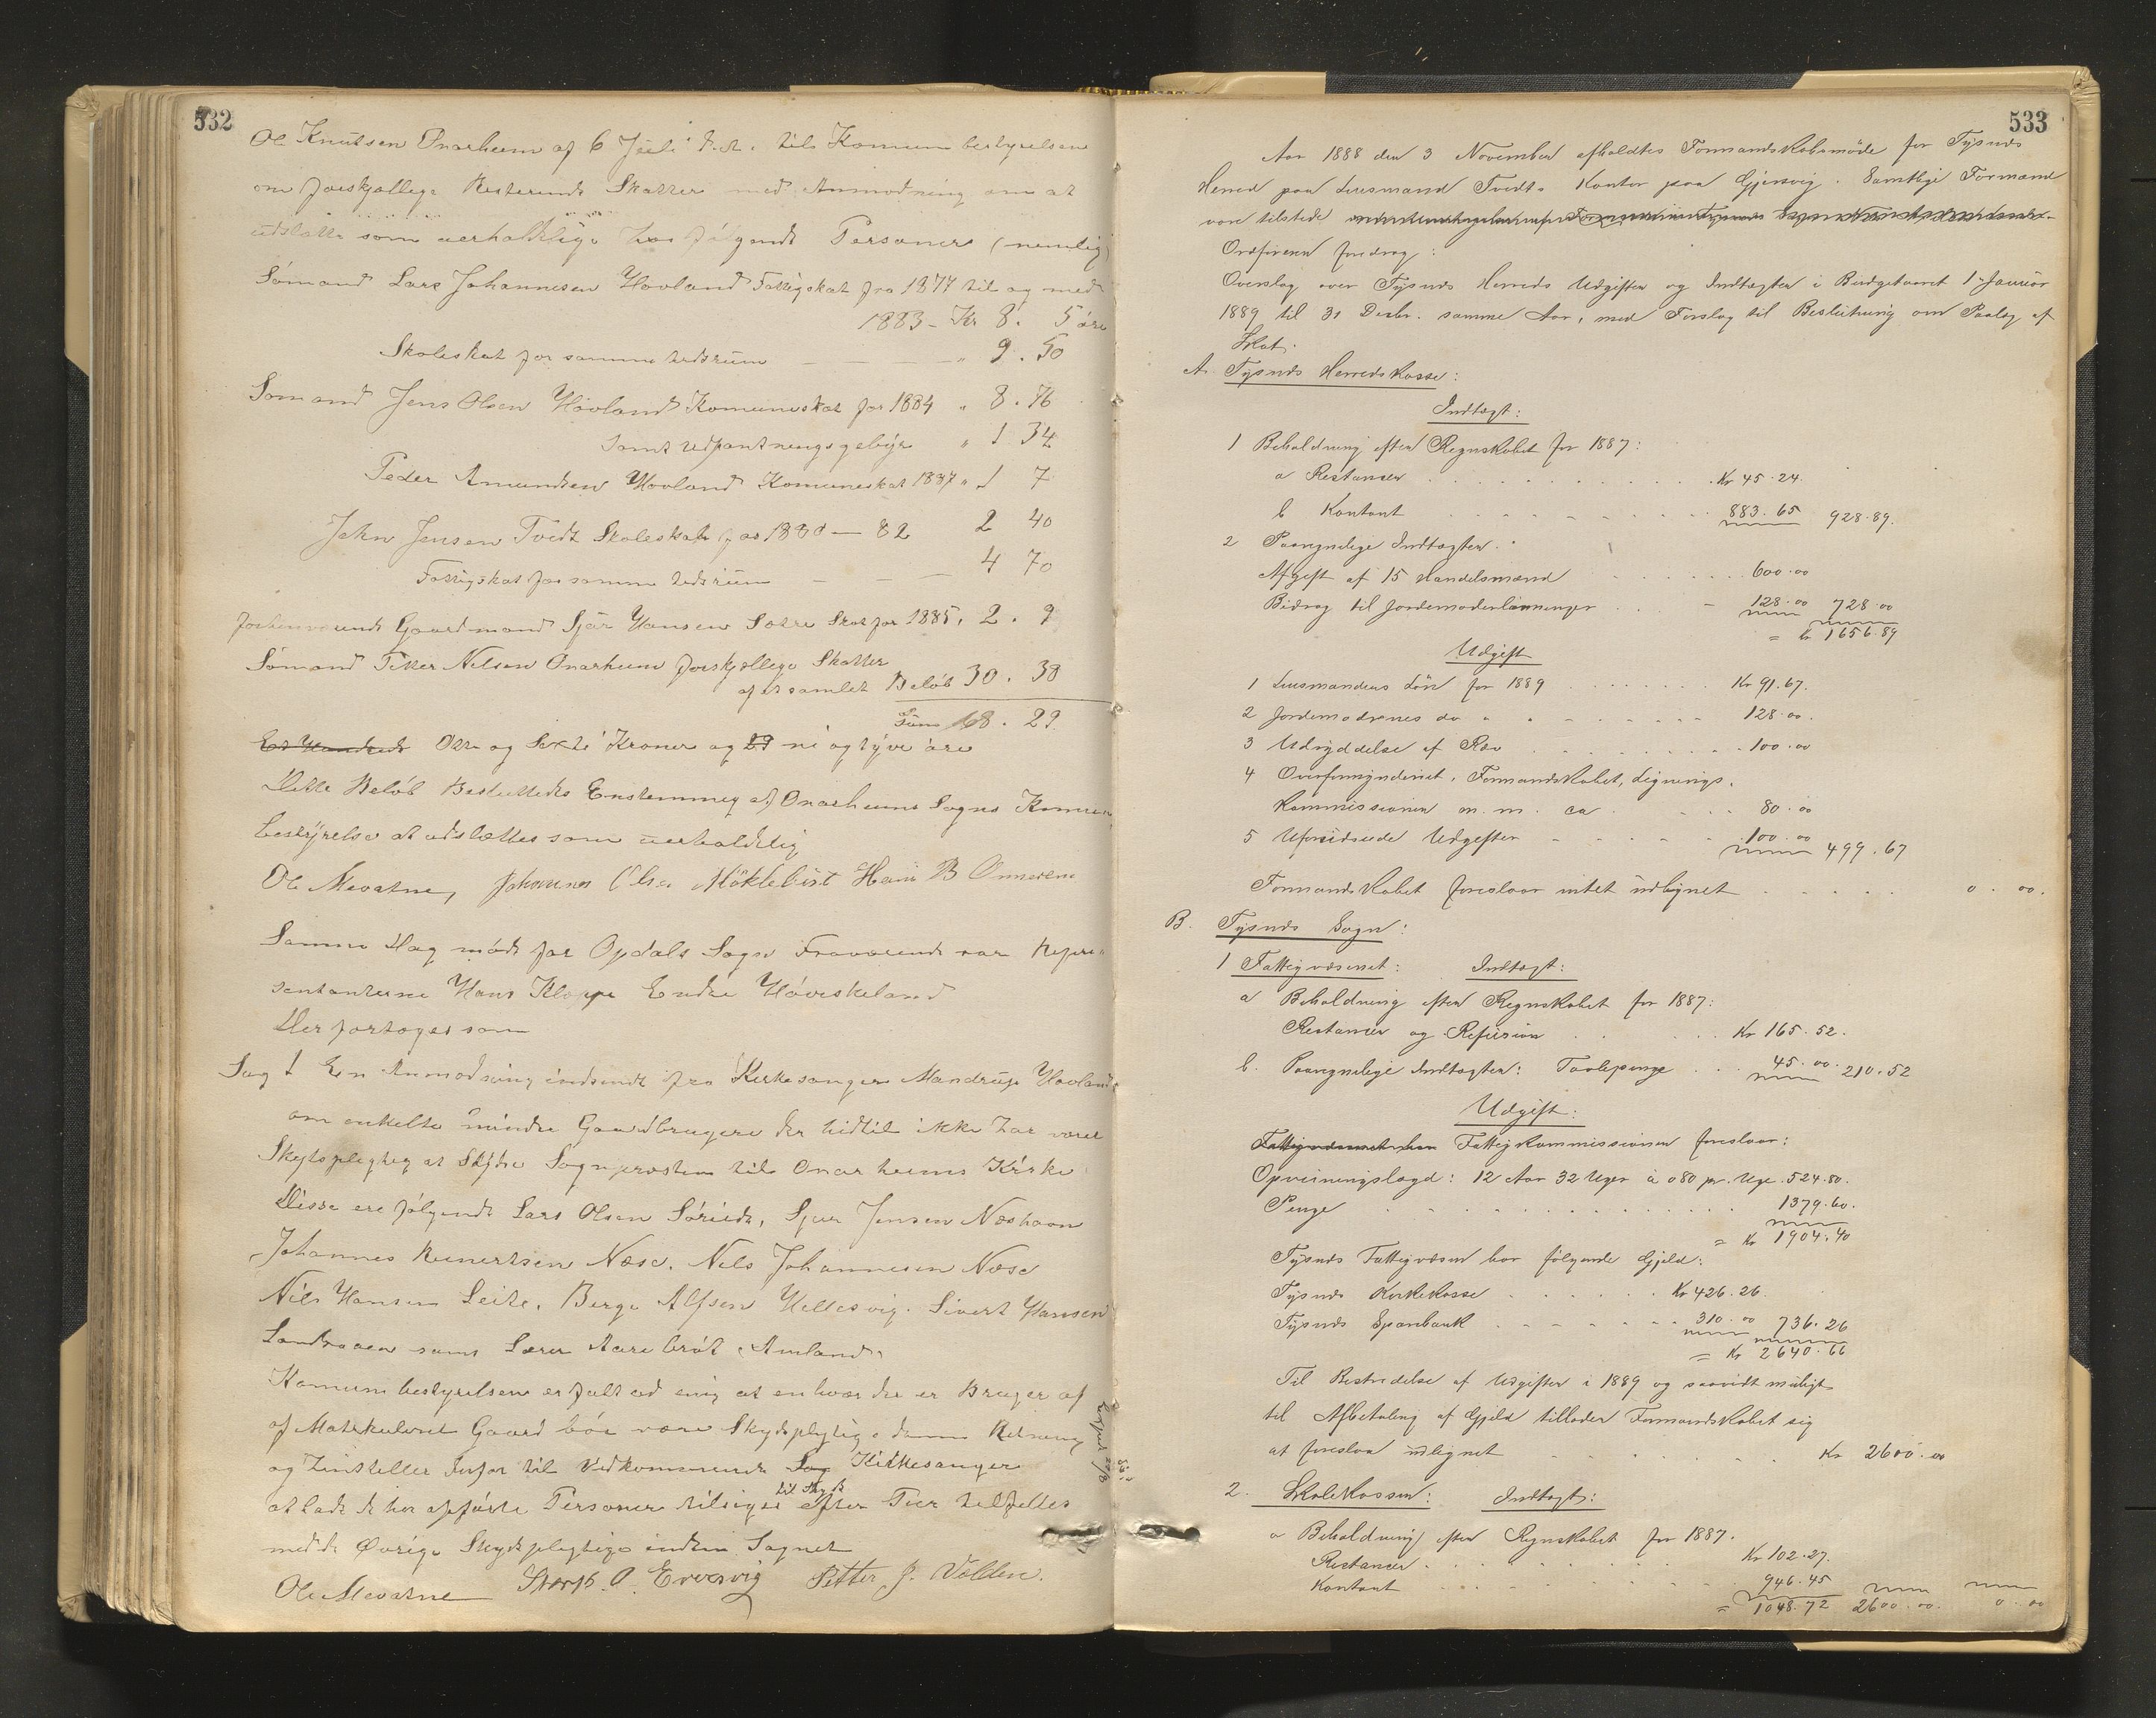 532
Ole Knutsen Onarheim af 6 Juli d.A. til Komunebestyrelsen
om forskjællige Resterende Skatter med Anmodning om at
udslætte som uerholdelige hos følgende Personer (nemlig)
Sömand Lars Johannesen Hovland Fattigskat fra 1877 til og med
1883 - Kr 8. 5 öre
Skoleskat for samme tidsrüm — " 9. 50
Sömand Jens Olsen Hovland Komuneskat for 1884 " 8. 76
samt udpantningsgebyr " 1 34
Peder Amundsen Hovland Komuneskat 1887 " 1 7
John Jensen Tvedt Skoleskat for 1880 — 82 2 40
Fattigskat for samme tidsrüm — — — 4 70
forhenværende Gaardmand Sjür Hansen Sætre Skat for 1885. 2. 9
Sömand Peter Nilsen Onarheim forskjællige Skatter
af et samlet Belöb 30. 38
Sum 68. 29
Et Hundrede Otte og Sexti Kroner og 29 ni og tyve öre
Dette Belöb Besluttedes Enstemmig af Onarheims Sogns Komune
bestyrelse at udslættes som uerholdelig
Ole Mevatne, Johannes Olsen Möklebüst Hans B Onnereim
Samme Dag möde for Opdals Sogn Fraværende var Repre-
sentanterne Hans Kloppe Endre Höviskeland
Der fortoges som
Sag 1 En Anmodning indsendt fra Kirkesanger Mandrup Hovland
om enkelte mindre Gaardbrugere der hidtil ikke har været
Skydspligtig at Skydse Sognepresten til Onarheims Kirke
Disse ere følgende Lars Olsen Söreide, Sjur Jensen Neshavn
Johannes Reinertsen Næse. Nils Johannesen Næse
Nils Hansen Leite. Berge Alfsen Hellesvig. Sivert Hansen
Landraaen samt Lærer Aarebröt Amland
Komunebestyrelsen er fuldt ud enig at enhver der er Bruger af
af Matrikuleret Gaard bör være Skydspligtig i denne Retning
og Indstiller derfor til Vedkomenende Sag Kirkesanger
at lade de her opførte Personer tilsiges til Skyds efter Tur tilfelles
med de Øvrige Skydspligtige inden Sognet
Ole Mevatne Størk A. Enesvig Petter J. Vollen.
533
Aar 1888 den 3 November afholdtes Formandskabsmøde for Tysnæs
Herred paa Lensmand Tvedts Kontor paa Gjersvig. Samtlige Formænd
vare tilstede
Ordføreren foredrog:
Overslag over Tysnæs Herreds Udgifter og Indtægter i Budgetaaret 1 Januar
1889 til 31 Decbr. samme Aar, med Forslag til Beslutning om Paalæg af
Skat.
A. Tysnæs Herredskasse:
Indtægt:
1 Beholdning efter Regnskabet for 1887:
a Restancer Kr 45.24
b Kontant 883.65 928.89.
2 Paaregnelige Indtægter.
Afgift af 15 Handelsmænd 600.00
Bidrag til Jordemoderlønninger 128.00 728.00
= Kr 1656.89
Udgift
1 Lensmandens Løn for 1889 Kr 91.67.
2 Jordemodrenes do 128.00.
3 Udryddelse af Ræv 100.00
4 Overformynderiet, Formandskabet, Lignings-
kommissionen m. m. ca 80.00
5 Uforudseede Udgifter 100.00 499.67
Formandskabet foreslaar intet udlignet 0.00.
B. Tysnæs Sogn:
1 Fattigvæsenet: Indtægt:
a Beholdning efter Regnskabet for 1887:
Restancer og Refusion Kr 165.52.
b. Paaregnelige Indtægter: Tavlepenge 45.00. 210.52
Udgift:
Fattigvæsenet har Fattigkommissionen foreslaar:
Opviisningslægd: 12 Aar 32 Uger à 080 pr. Uge. 524.80.
Penge 1379.60.
= Kr 1904.40
Tysnæs Fattigvæsen har følgende Gjeld:
Tysnæs Kirkekasse Kr 426.26.
Tysnæs Sparebank 310.00 736.26
= Kr 2640.66
Til Bestridelse af Udgifter i 1889 og saavidt muligt
til Afbetaling af Gjeld tillader Formandskabet sig
at foreslaa udlignet Kr 2600.00
2. Skolekassen: Indtægt:
a Beholdning efter Regnskabet for 1887.
Restancer Kr 102.27.
Kontant 946.45
= 1048.72 2600.00. 0.00